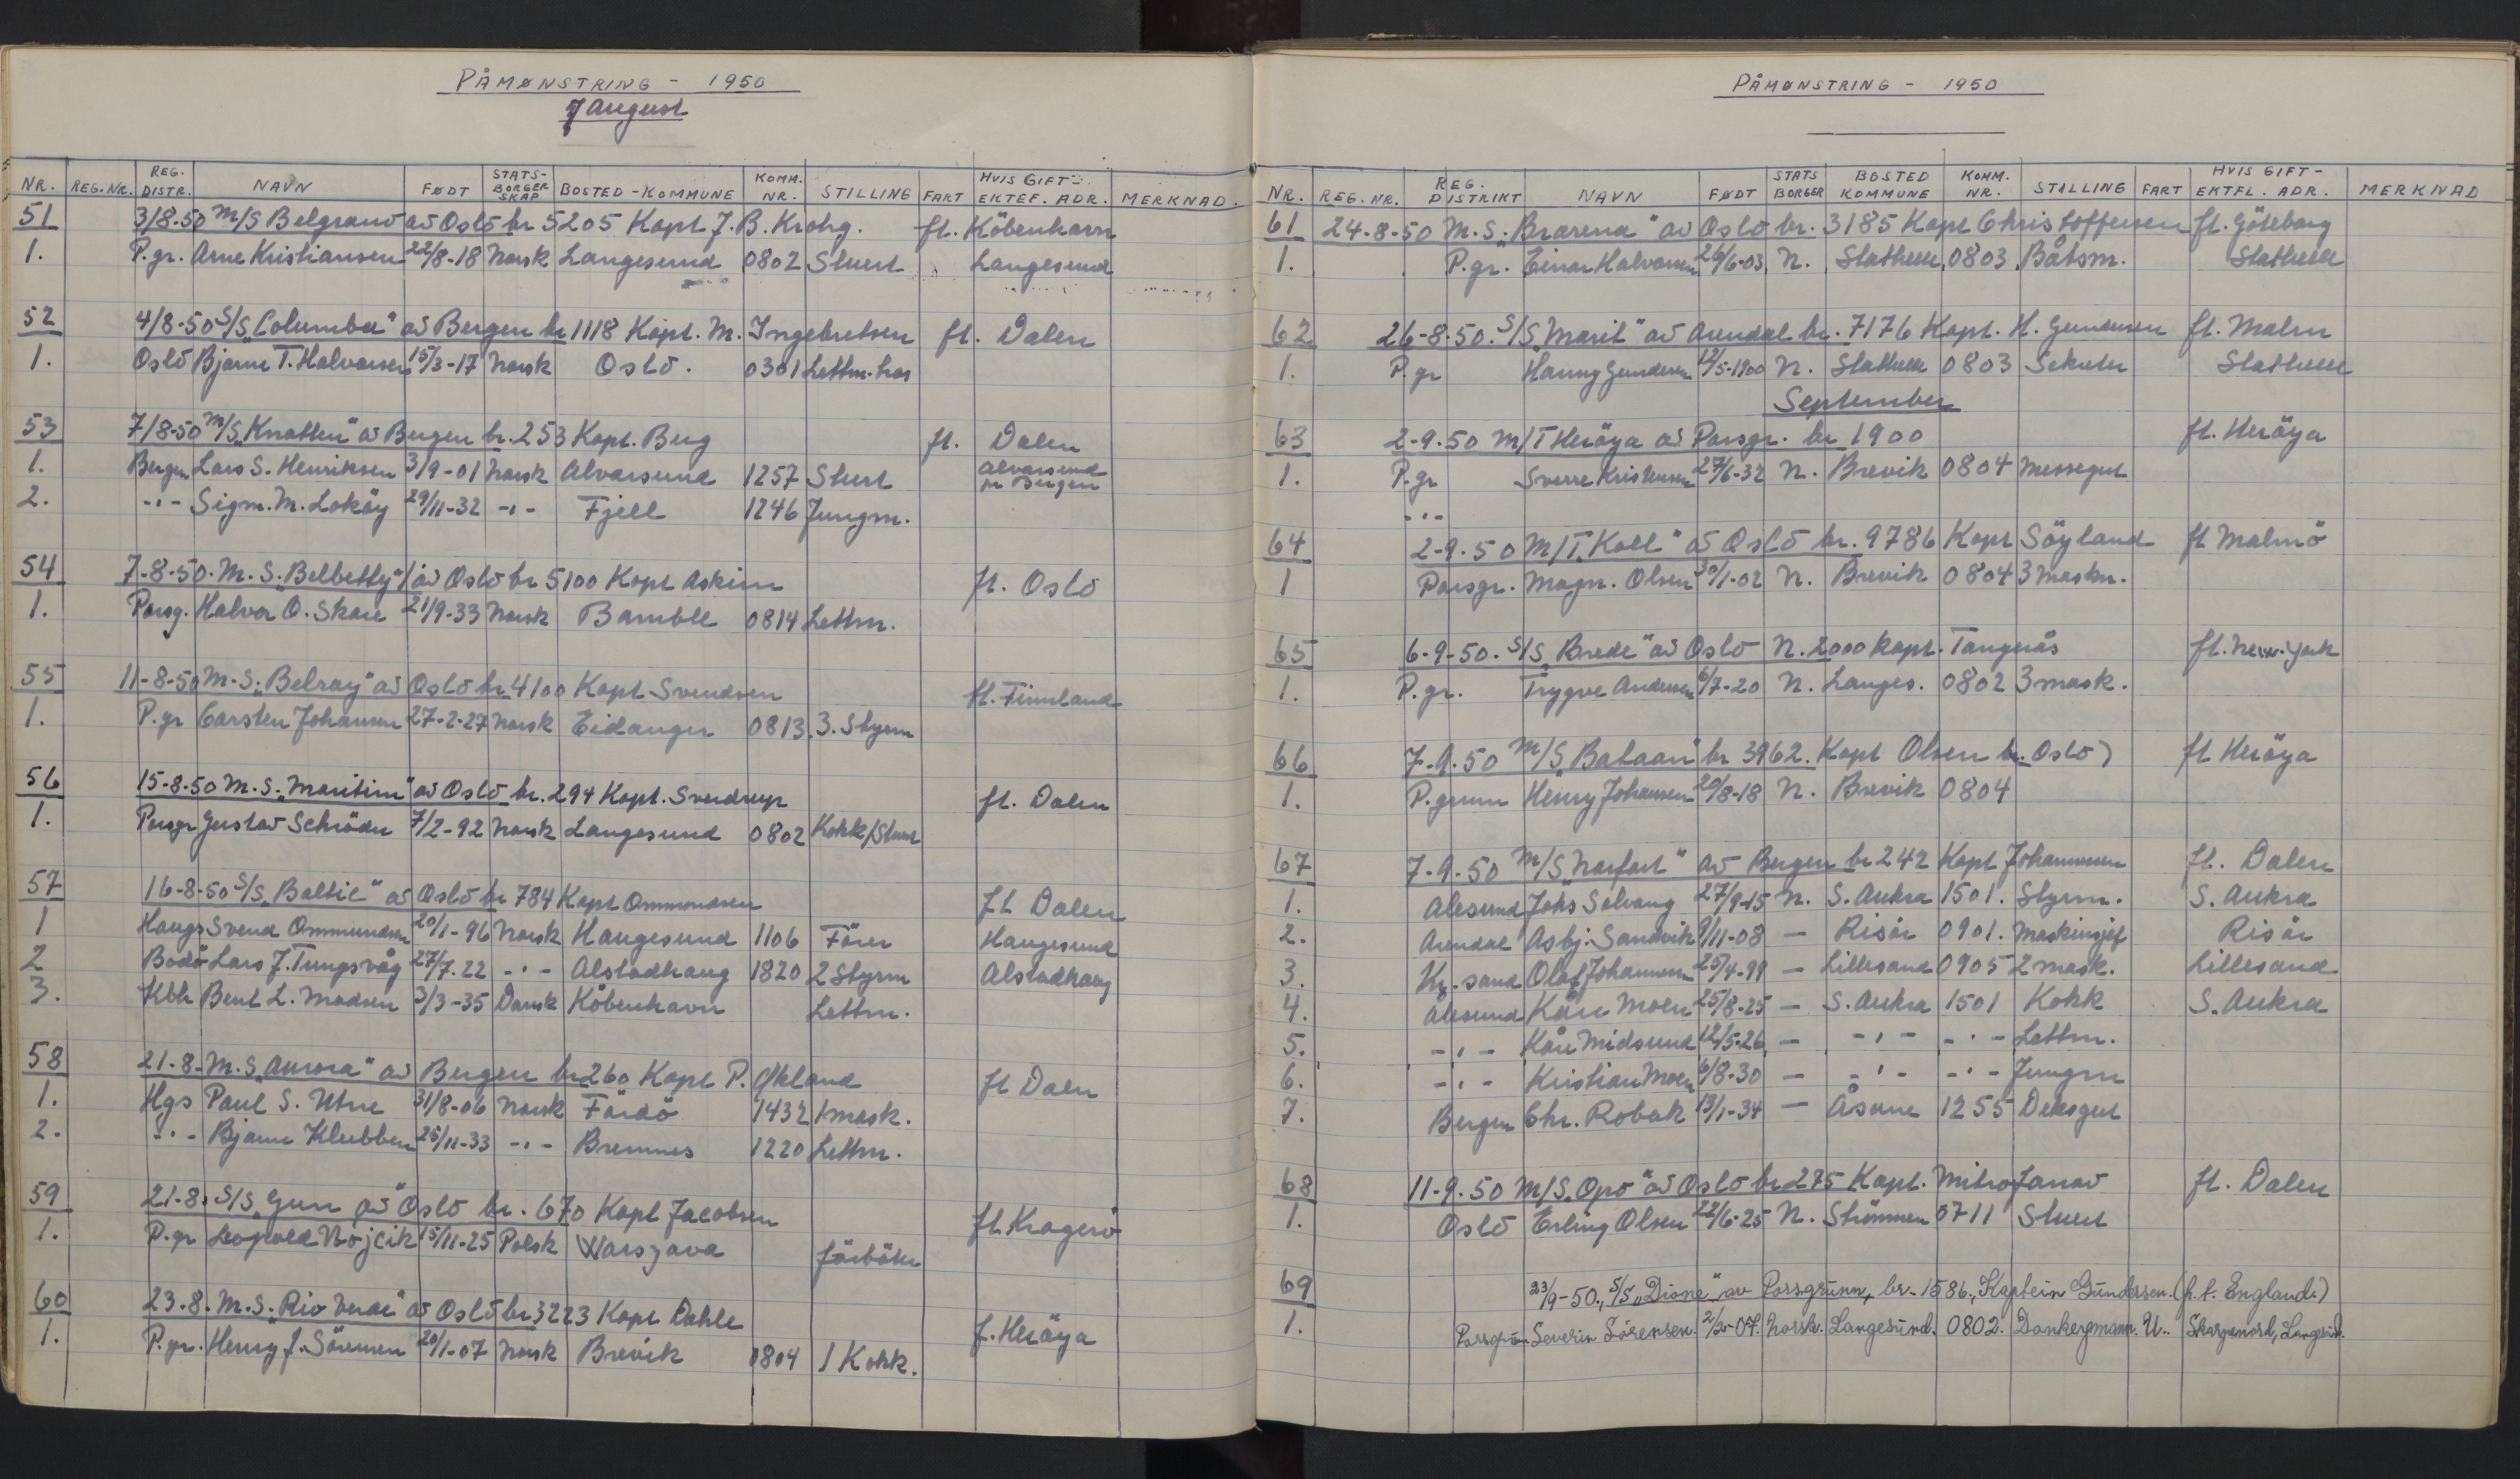 PÅMØNSTRING - 1950
August
NR. REG.NR. REG. DISTR. NAVN FØDT STATS-BORGER SKAP BOSTED-KOMMUNE KOMM. NR. STILLING FART HVIS GIFT- EKTEF. ADR. MERKNAD.
51 3/8-50 M/S Belgrano av Oslo br 5205 Kapt J. B. Krohg. ft. København
1. P.gr. Arne Kristiansen 22/8-18 Norsk Langesund 0802 Stuert Langesund
52 4/8-50 S/S "Columba" av Bergen br 1118 Kapt. M. Ingebretsen ft. Dalen
1. Oslo Bjarne T. Halvorsen 15/3-17 Norsk Oslo. 0301 Lettm.
53 7/8-50 M/S "Knatten" av Bergen br. 253 Kapt. Berg ft. Dalen
1. Bergen Lars S. Henriksen 3/9-01 Norsk Alvarsund 1257 Stuert Alvarsund pr Bergen
2. -"- Sigm. M. Loköy 29/11-32 -"- Fjell 1246 Jungm.
54 7-8-50. M.S. "Belbetty" av Oslo br 5100 Kapt Askim ft. Oslo
1. Porsg. Halvor O. Skare 21/9-33 Norsk Bamble 0814 Lettm.
55 11-8-50 M.S. "Belray" av Oslo br 4100 Kapt Svendsen ft. Finnland
1. P.gr Carsten Johansen 27-2-27 Norsk Eidanger 0813. 3. Styrm
56 15-8-50 M.S. "Maritim" av Oslo br. 294 Kapt. Sverdrup ft. Dalen
1. Porsgr Gustav Schröder 7/2-92 Norsk Langesund 0802 Kokk/Stuert
57 16-8-50 S/S "Baltic" av Oslo br 784 Kapt Ommundsen ft Dalen
1 Haugs Svend Ommundsen 20/1-96 Norsk Haugesund 1106 Förer Haugesund
2 Bodö Lars J. Tungsvåg 27/7.22 -"- Alstadhaug 1820 2 Styrm Alstadhaug
3. Kbh Bent L. Madsen 3/3-35 Dansk Köbenhavn Lettm.
58 21-8- M.S. "Aurora" av Bergen br 260 Kapt P. Økland ft Dalen
1. Hgs Paul S. Utne 31/8-06 Norsk Fördö 1432 1 mask.
2. -"- Bjarne Klubben 25/11-33 -"- Bremnes 1220 Lettm.
59 21-8. S/S "Gun" av Oslo br. 670 Kapt Jacobsen ft Kragerö
1. P.gr Leopold Wojcik 15/11-25 Polsk Warszava fördöter
60 23.8. M.S. "Rio Verde" av Oslo br 3223 Kapt Dahle f. Heröya
1. P.gr. Henry J. Sörensen 20/1-07 Norsk Brevik 0804 1 Kokk.
PÅMØNSTRING - 1950
NR. REG. NR. REG. DISTRIKT NAVN FØDT STATS BORGER BOSTED KOMMUNE KOMM. NR. STILLING FART HVIS GIFT- EKTFL. ADR. MERKNAD
61 24-8-50 M.S. "Brarena" av Oslo br. 3185 Kapt Christoffersen ft. Göteborg
1. P.gr. Einar Halvorsen 26/6-03 N. Stathelle 0803 Båtsm. Stathelle
62 26-8-50. S/S "Marit" av Arendal br. 7176 Kapt. H. Gundersen ft. Malm
1. P.gr Hanny Gundersen 12/5-1900 N. Stathelle 0803 Sekretær Stathelle
September
63 2-9.50 M/T Heröya av Porsgr. br 1900 ft. Heröya
1. P.gr Sverre Kristensen 27/6-32 N. Brevik 0804 Messegut
-"-
64 2-9.50 M/T. "Koll" av Oslo br. 9786 Kapt Söyland ft Malmö
1 Porsgr. Magn. Olsen 30/1-02 N. Brevik 0804 3 maskn.
65 6-9-50. S/S "Brede" av Oslo N. 2000 Kapt. Tangerås ft. New-York
1. P.gr. Trygve Andersen 6/7-20 N. Langes. 0802 3 mask.
66 7-9.50 M/S "Bataan" br 3962. Kapt Olsen br. Oslo) ft Heröya
1. P.grunn Henry Johansen 20/8-18 N. Brevik 0804
67 7-9.50 M/S "Norfart" av Bergen br 242 Kapt Johannessen ft. Dalen
1. Ålesund Johs Solvang 27/9-15 N. S. Aukra 1501. Styrm. S. Aukra
2. Arendal Asbj. Sandvik 9/11-08 - Risör 0901. Maskinsjef Risör
3. Kr.sand Olaf Johannesen 25/4-99 - Lillesand 0905 2 mask. Lillesand
4. Ålesund Kåre Moen 25/8-25 - S. Aukra 1501 Kokk S. Aukra
5. -"- Kåre Midsund 12/5-26 - -"- -"- Lettm.
6. -"- Kristian Moen 6/8-30 - -"- -"- Jungm
7. Bergen Chr. Robak 13/1-34 - Åsane 1255 Deksgut
68 11-9.50 M/S "Opo" av Oslo br 275 Kapt. Mitrofanov ft. Dalen
1. Oslo Erling Olsen 22/6-25 N. Strömmen 0711 Stuert
69 23/9-50., S/S "Dione" av Porsgrunn, br. 1586., Kaptein Gundersen. (f.t. England.)
1. Porsgrunn Severin Sörensen. 07. Norsk. Langesund. 0802. Donkeymann. U.. Langesund.